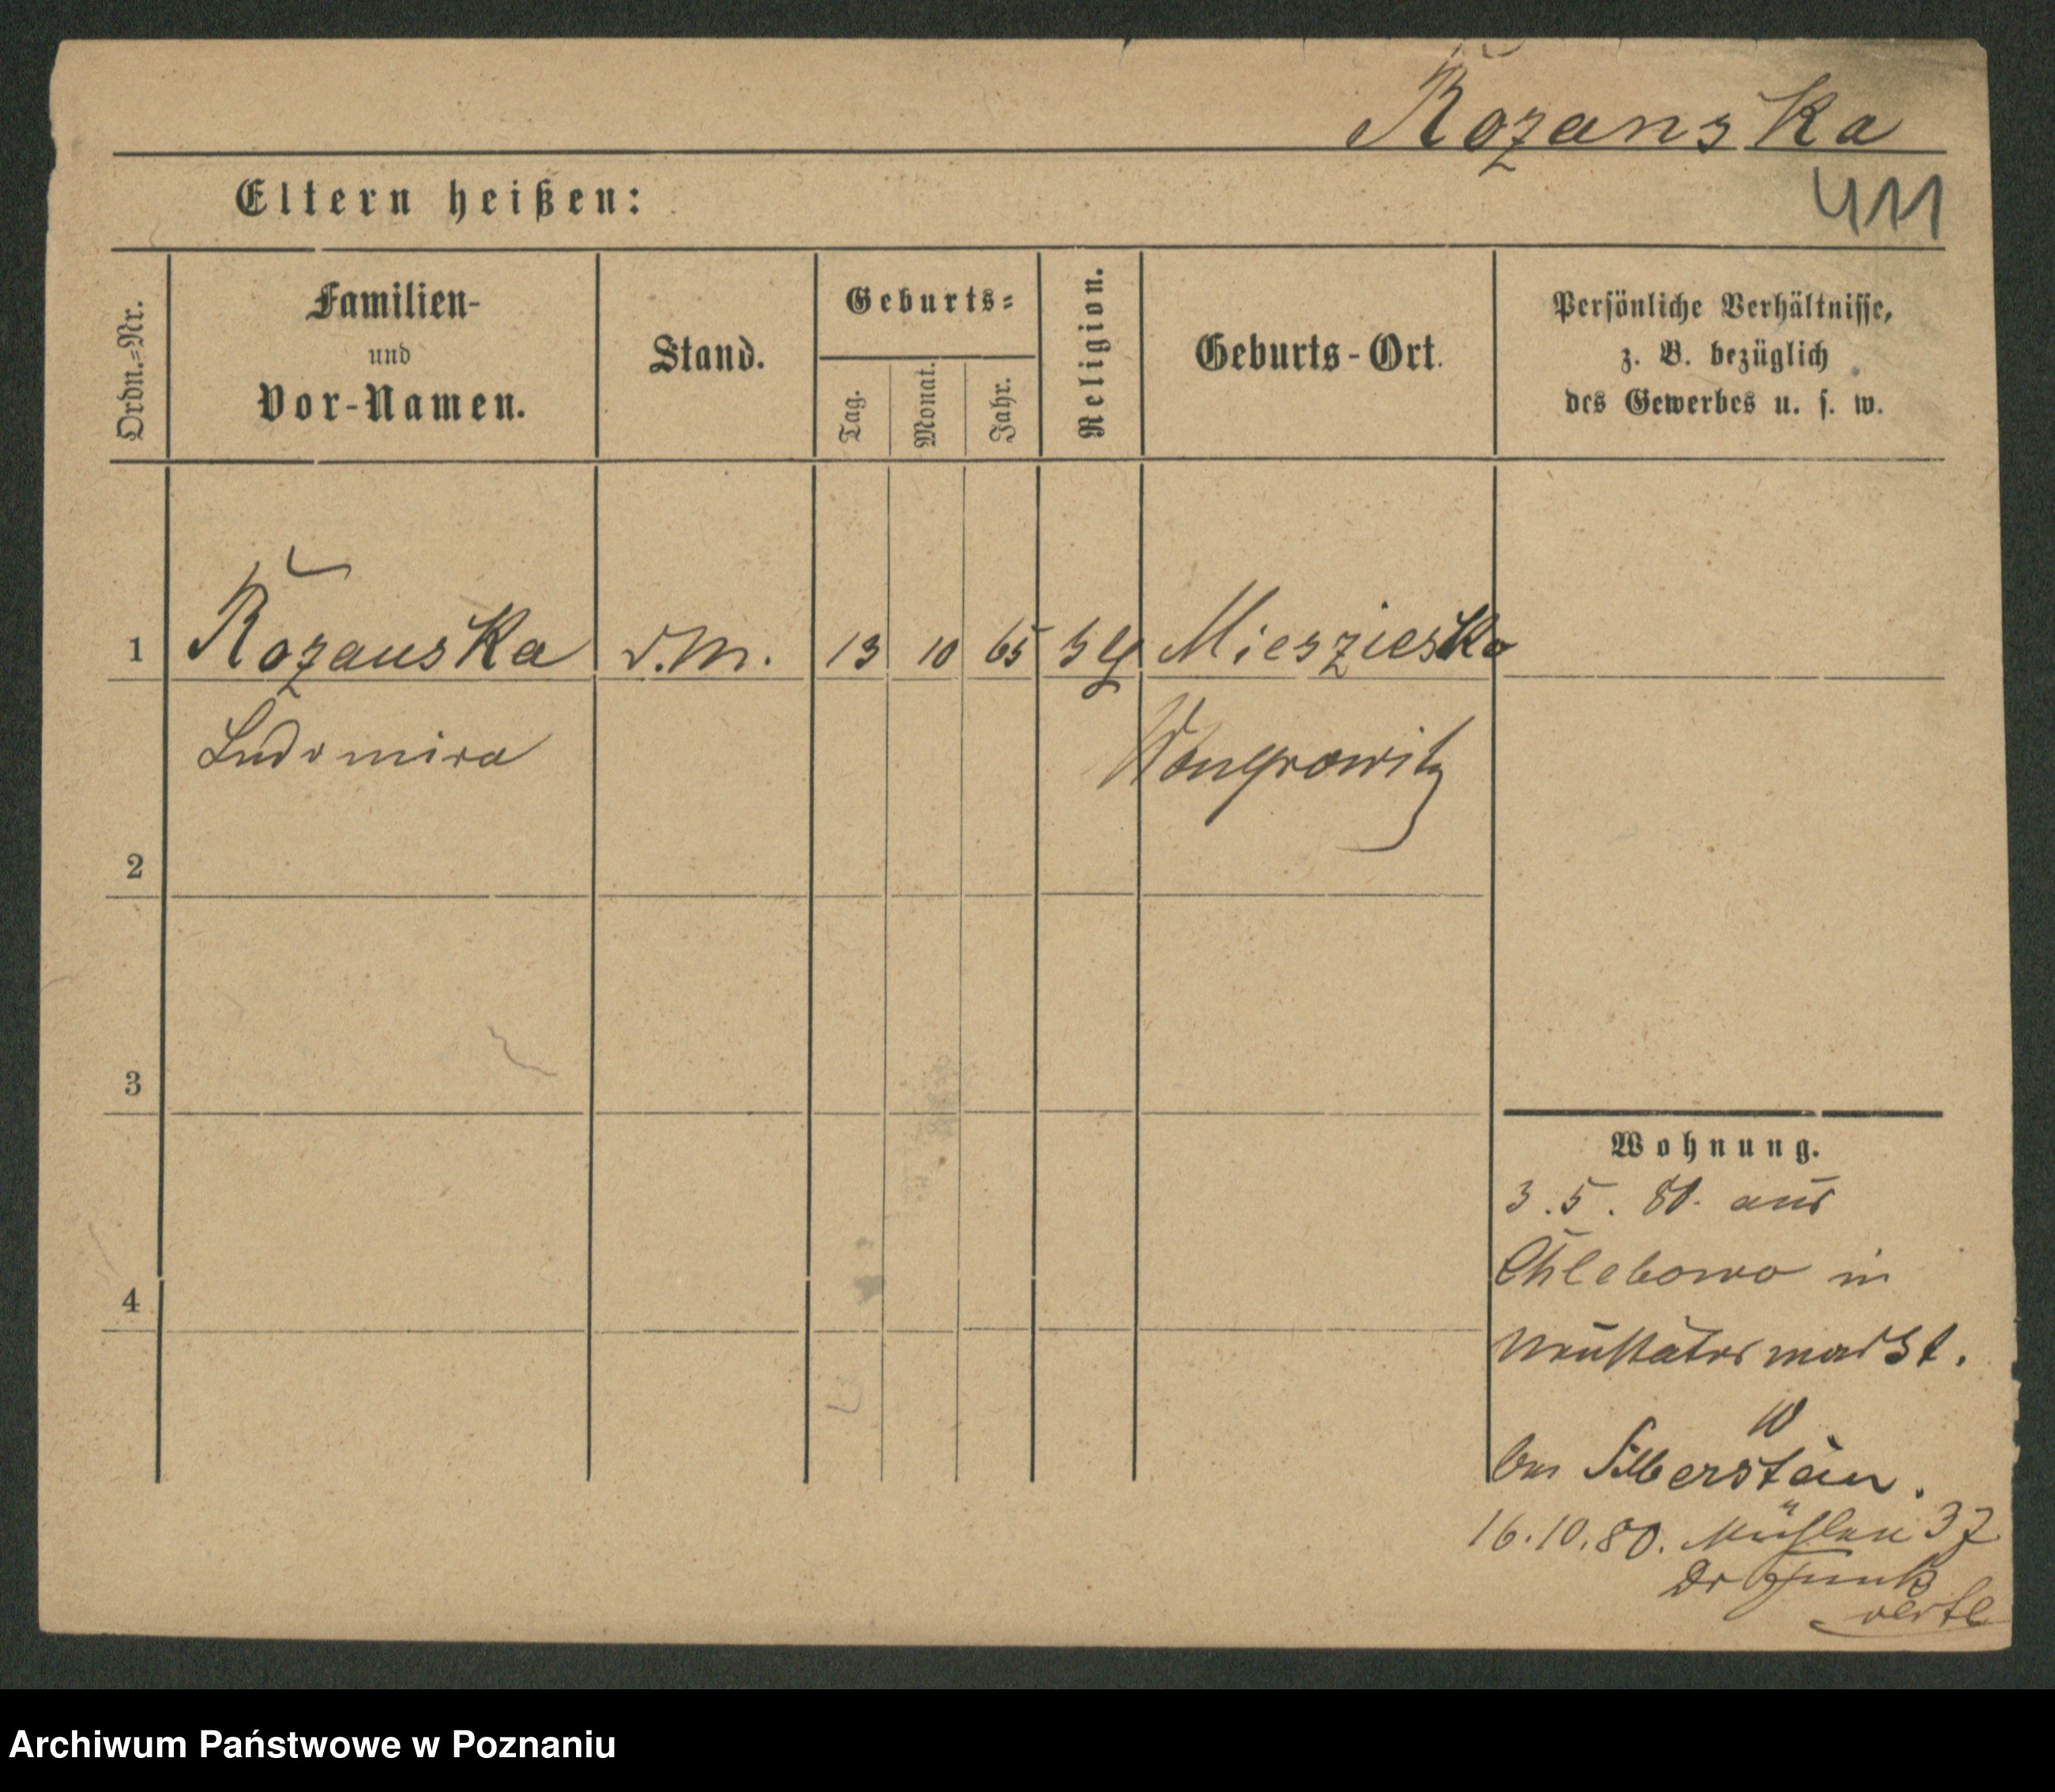 Rozanska
411
Eltern heißen:
Ordn.=Nr.
Familien-
und
Vor-Namen.
Stand.
Geburts=
Tag.
Monat.
Jahr.
Religion.
Geburts-Ort.
Persönliche Verhältnisse,
z. B. bezüglich
des Gewerbes u. s. w.
1 Rozanska d. M. 13 10 65 Miesziesko
Ludomira Wongrowitz
2
3
4
Wohnung.
3.5.80. aus
Chlebowo in
Neustädter markt.
10
bei Silberstein.
16.10.80. Mühlen 37
Dr
verte
Archiwum Państwowe w Poznaniu